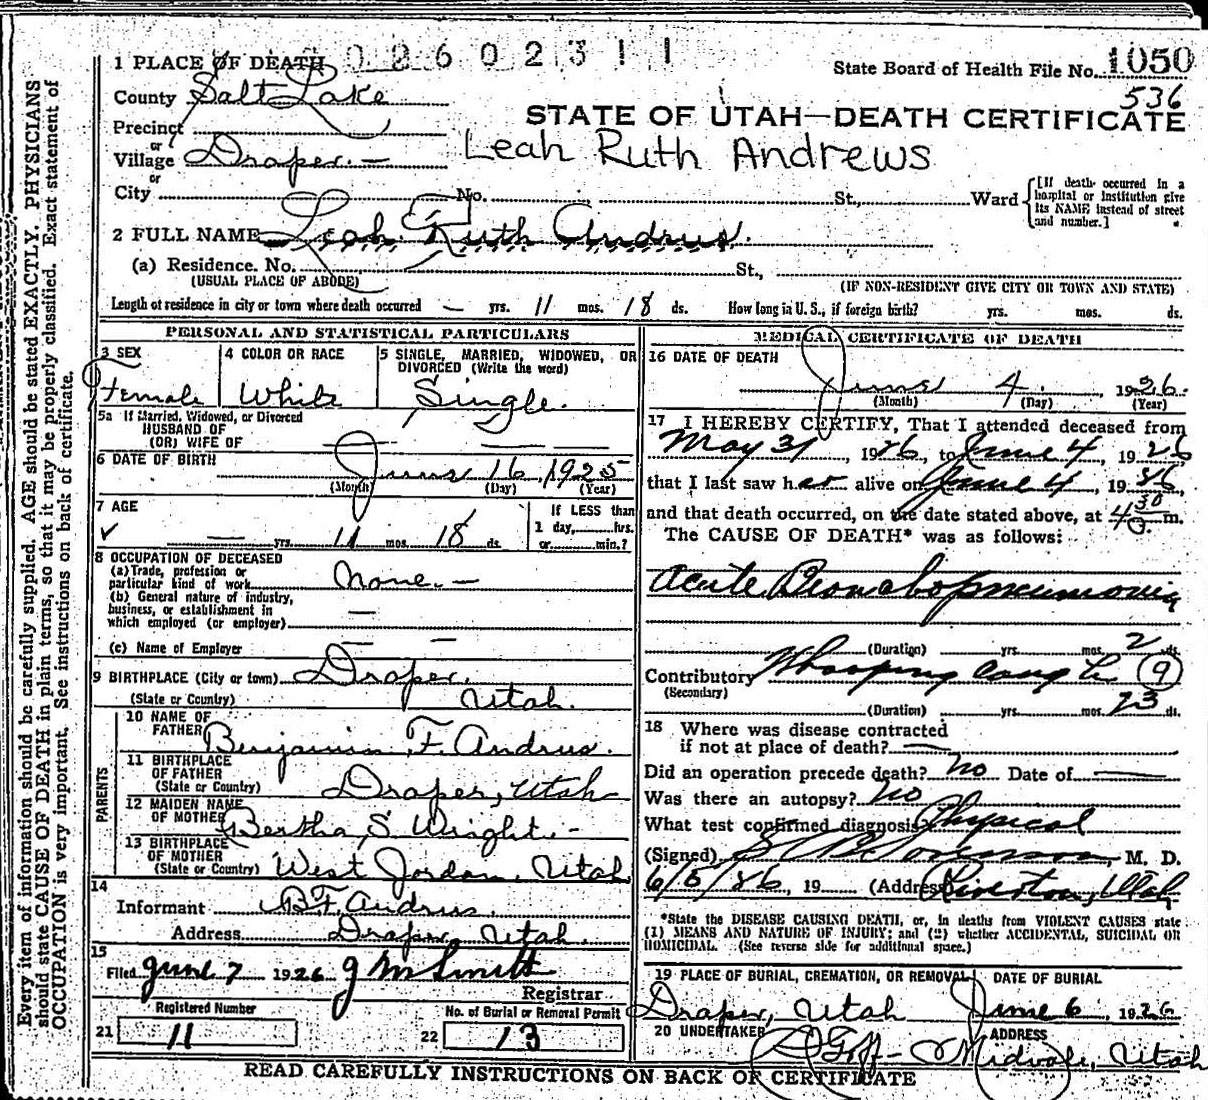 02602311
1 PLACE OF DEATH
State Board of Health File No. 1050
536
County Salt Lake
STATE OF UTAH—DEATH CERTIFICATE
Precinct
or
Village Draper.—
Leah Ruth Andrews
or
City No. St., Ward
[If death occurred in a hospital or institution give its NAME instead of street and number.]
2 FULL NAME Leah Ruth Andrus.
(a) Residence. No. St.,
(USUAL PLACE OF ABODE) (IF NON-RESIDENT GIVE CITY OR TOWN AND STATE)
Length of residence in city or town where death occurred — yrs. 11 mos. 18 ds. How long in U. S., if foreign birth? yrs. mos. ds.
PERSONAL AND STATISTICAL PARTICULARS
3 SEX
Female
4 COLOR OR RACE
White
5 SINGLE, MARRIED, WIDOWED, OR
DIVORCED (Write the word)
Single.
5a If Married, Widowed, or Divorced
HUSBAND OF
(OR) WIFE OF
6 DATE OF BIRTH
June 16, 1925
(Month) (Day) (Year)
7 AGE
— yrs. 11 mos. 18 ds.
If LESS than
1 day, hrs.
or min.?
8 OCCUPATION OF DECEASED
(a) Trade, profession or
particular kind of work None.—
(b) General nature of industry,
business, or establishment in
which employed (or employer) —
(c) Name of Employer —
9 BIRTHPLACE (City or town) Draper.
(State or Country) Utah.
PARENTS
10 NAME OF
FATHER Benjamin F. Andrus.
11 BIRTHPLACE
OF FATHER
(State or Country) Draper, Utah
12 MAIDEN NAME
OF MOTHER Bertha S. Wright.-
13 BIRTHPLACE
OF MOTHER
(State or Country) West Jordan, Utah
14
Informant B F Andrus.
Address Draper, Utah.
15
Filed June 7 1926 J M Smith
Registrar
Registered Number
21 11
No. of Burial or Removal Permit
22 13
MEDICAL CERTIFICATE OF DEATH
16 DATE OF DEATH
June 4. 1926.
(Month) (Day) (Year)
17 I HEREBY CERTIFY, That I attended deceased from
May 31, 1926, to June 4 1926
that I last saw her alive on June 4, 1926,
and that death occurred, on the date stated above, at 4 30 m.
The CAUSE OF DEATH* was as follows:
Acute Bronchopneumonia
(Duration) yrs. mos. 2 ds.
Contributory Whooping Cough 9
(Secondary)
(Duration) yrs. mos. 23 ds.
18 Where was disease contracted
if not at place of death? —
Did an operation precede death? No Date of —
Was there an autopsy? No
What test confirmed diagnosis Physical
(Signed) Sorenson, M. D.
6/5/26, 19 (Address Riverton, Utah
*State the DISEASE CAUSING DEATH, or, in deaths from VIOLENT CAUSES state
(1) MEANS AND NATURE OF INJURY; and (2) whether ACCIDENTAL, SUICIDAL OR
HOMICIDAL. (See reverse side for additional space.)
19 PLACE OF BURIAL, CREMATION, OR REMOVAL
Draper, Utah
DATE OF BURIAL
June 6, 1926
20 UNDERTAKER
Goff—
ADDRESS
Midvale, Utah
READ CAREFULLY INSTRUCTIONS ON BACK OF CERTIFICATE
Every item of information should be carefully supplied. AGE should be stated EXACTLY. PHYSICIANS
should state CAUSE OF DEATH in plain terms, so that it may be properly classified. Exact statement of
OCCUPATION is very important. See instructions on back of certificate.